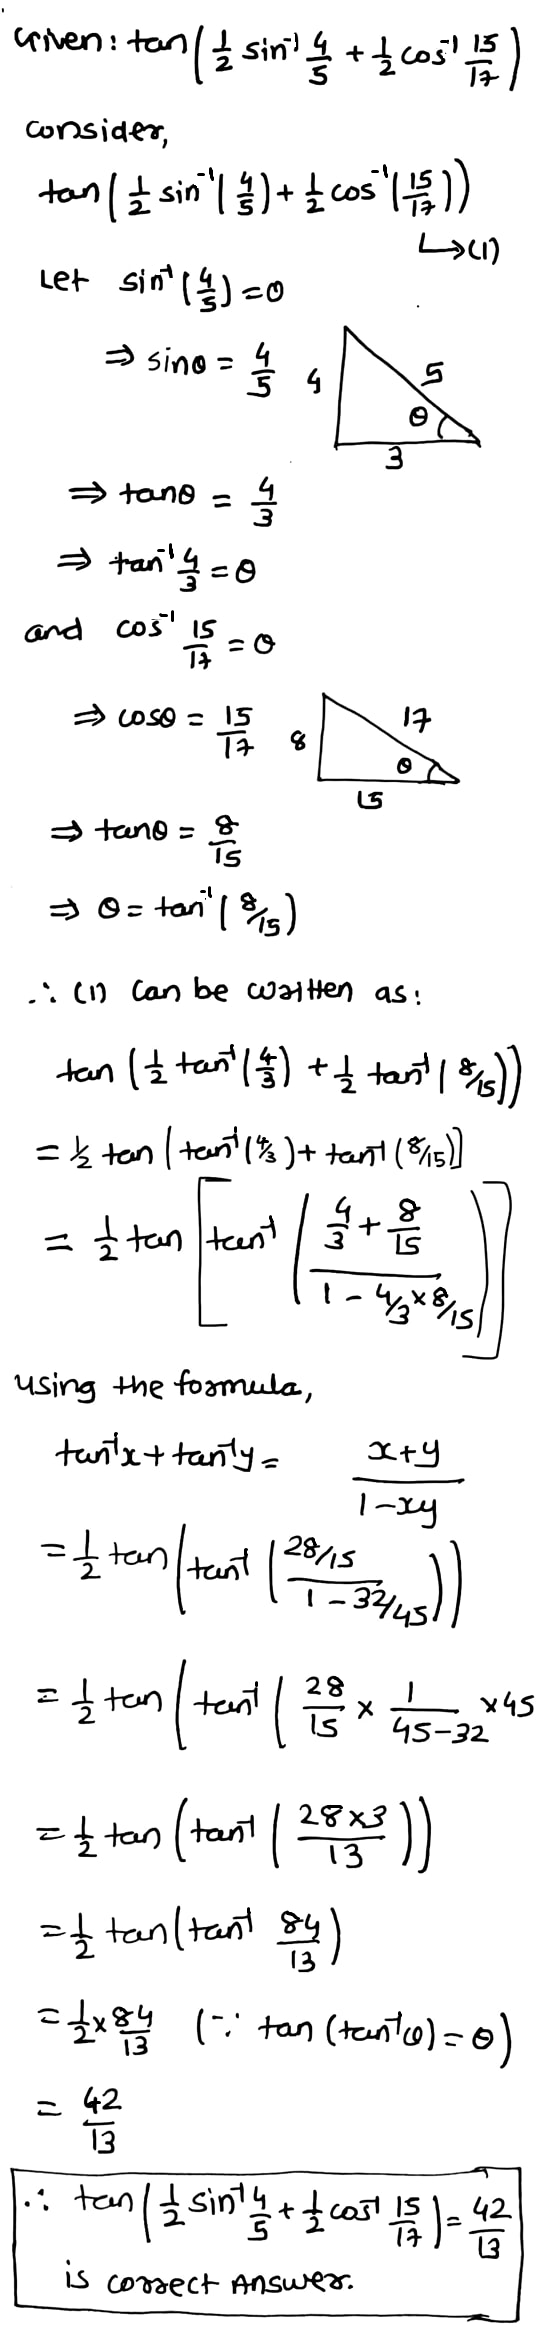 Given: tan(1/2 sin⁻¹ 4/5 + 1/2 cos⁻¹ 15/17)
consider,
tan(1/2 sin⁻¹(4/5) + 1/2 cos⁻¹(15/17))
↳(1)
Let sin⁻¹(4/5) = θ
⇒ sinθ = 4/5
4
5
θ
3
⇒ tanθ = 4/3
⇒ tan⁻¹ 4/3 = θ
and cos⁻¹ 15/17 = θ
⇒ cosθ = 15/17
8
17
θ
15
⇒ tanθ = 8/15
⇒ θ = tan⁻¹(8/15)
∴ (1) can be written as:
tan(1/2 tan⁻¹(4/3) + 1/2 tan⁻¹(8/15))
= 1/2 tan(tan⁻¹(4/3) + tan⁻¹(8/15)]
= 1/2 tan[tan⁻¹((4/3 + 8/15)/(1 - 4/3 × 8/15))]
using the formula,
tan⁻¹x + tan⁻¹y = (x+y)/(1-xy)
= 1/2 tan(tan⁻¹((28/15)/(1 - 32/45)))
= 1/2 tan(tan⁻¹(28/15 × 1/(45-32) × 45
= 1/2 tan(tan⁻¹((28×3)/13))
= 1/2 tan(tan⁻¹ 84/13)
= 1/2 × 84/13 (∵ tan(tan⁻¹θ) = θ)
= 42/13
∴ tan(1/2 sin⁻¹ 4/5 + 1/2 cos⁻¹ 15/17) = 42/13
is correct Answer.